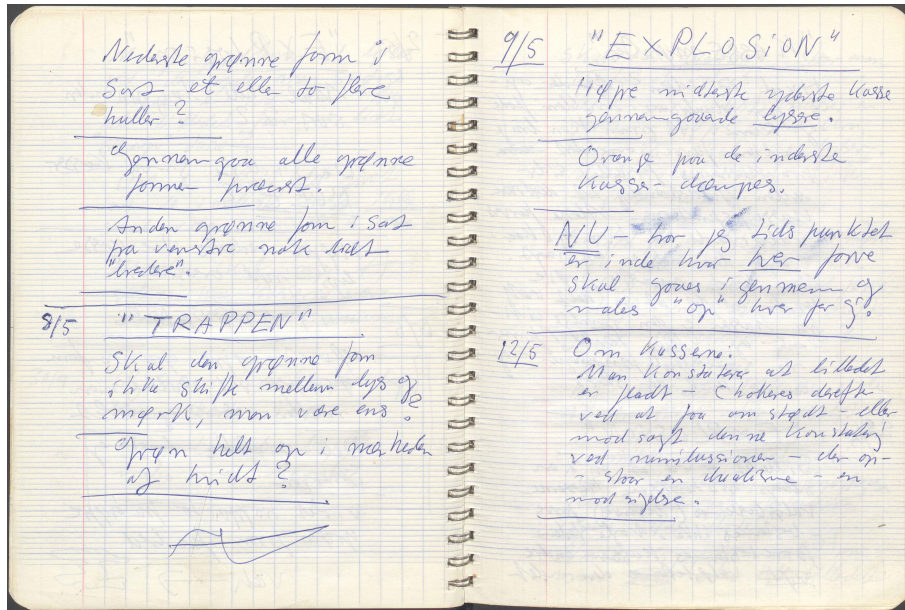 Nederste grønne form i
Sort et eller to flere
huller?
Gennemgaa alle grønne
former præcist.
Anden grønne form i Sort
fra venstre nok lidt
"bredere".
8/5 "TRAPPEN"
Skal den grønne form
ikke skifte mellem lys og
mørk, men være ens?
Grøn helt op i nærheden
af hvidt?
9/5 "EXPLOSiON"
midterste yderste Kasse
gennemgaaende lysere.
Orange paa de inderste
Kasser - dæmpes.
NU - har jeg tidspunktet
er inde hvor hver farve
skal gaaes igennem og
males "op" hver for sig.
12/5 Om Kasserne:
Man Konstaterer at billedet
er fladt - Chokeres derefter
ved at faa om stødt - eller
mod sagt denne Konstatering
ved rumillusionen - der op-
- staar en dualisme - en
mod sigelse.